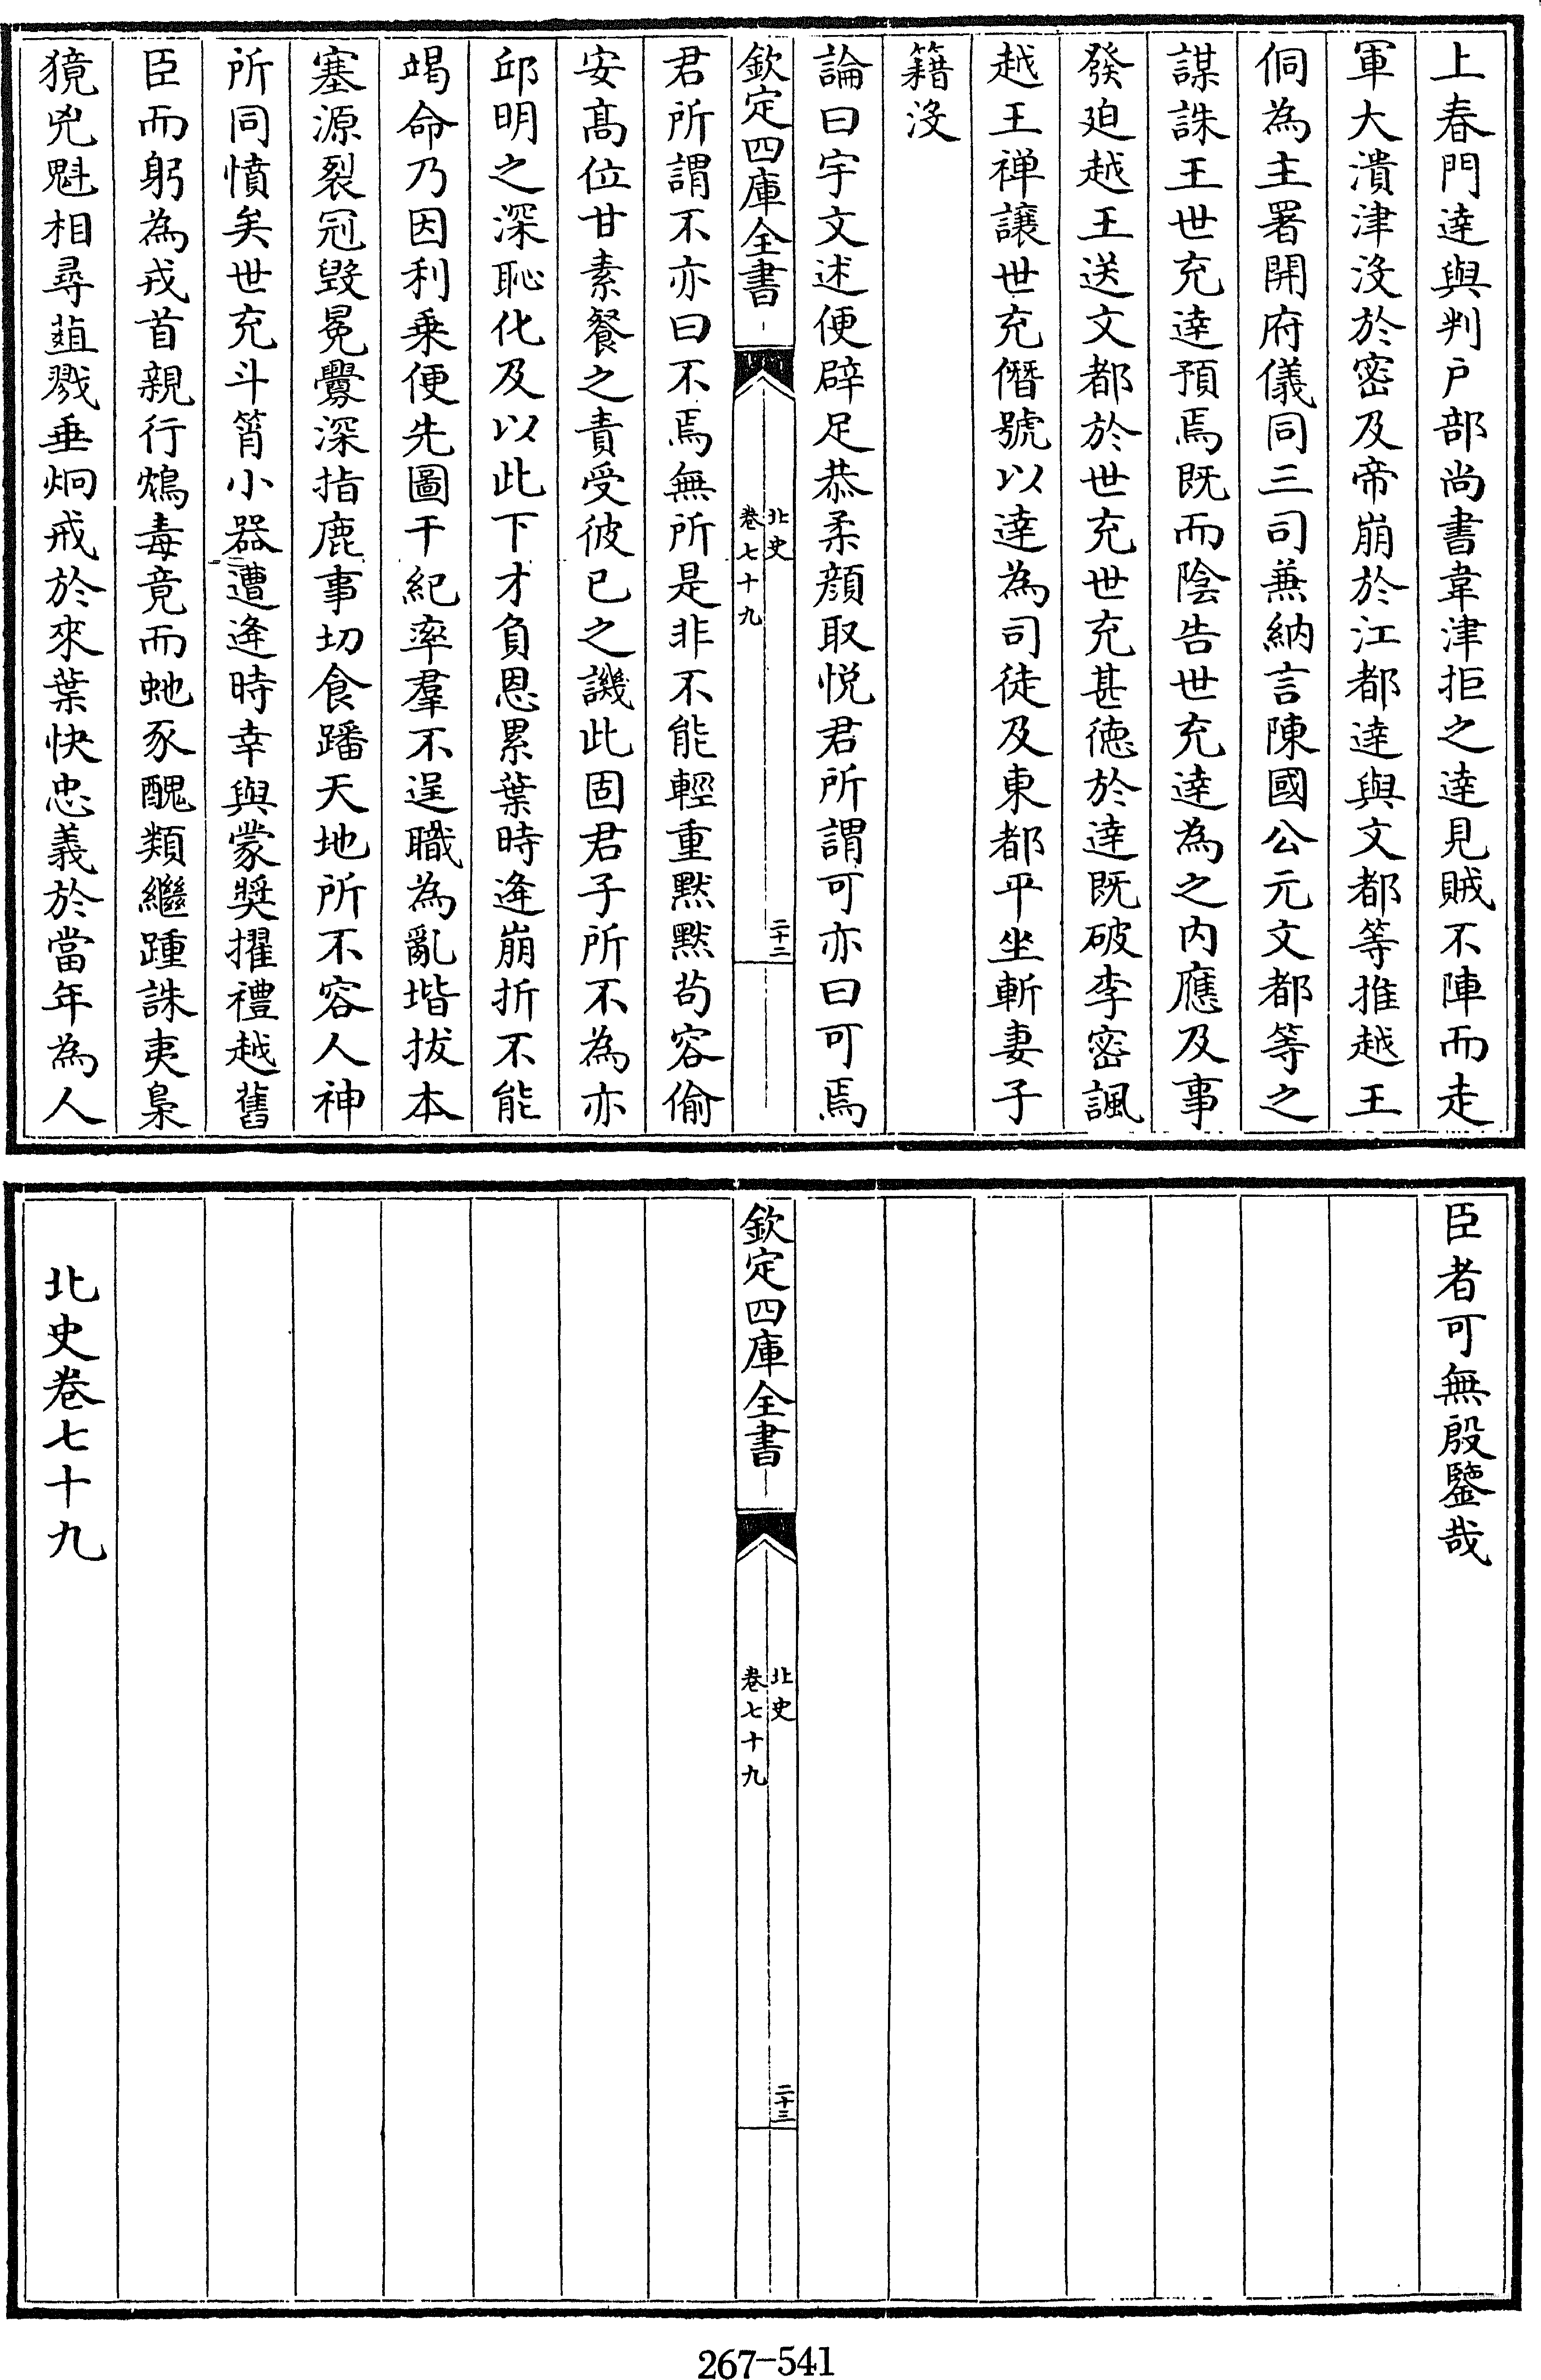 上春門達與判户部尚書韋津拒之達見賊不陣而走
軍大潰津没於密及帝崩於江都達與文都等推越王
侗為主署開府儀同三司兼納言陳國公元文都等之
謀誅王世充達預焉既而陰告世充達為之内應及事
發廹越王送文都於世充世充甚徳於達既破李密諷
越王禅讓世充僭號以達為司徒及東都平坐斬妻子
籍没
論曰宇文述便辟足恭柔顔取悦君所謂可亦曰可焉
欽定四庫全書
北史
卷七十九
二十二
君所謂不亦曰不焉無所是非不能輕重黙黙苟容偷
安髙位甘素餐之責受彼已之譏此固君子所不為亦
邱明之深恥化及以此下才負恩累葉時逄崩折不能
竭命乃因利乗便先圖干紀率羣不逞職為亂堦拔本
塞源裂冠毀冕釁深指鹿事切食蹯天地所不容人神
所同憤矣世充斗筲小器遭逄時幸與蒙奨擢禮越舊
臣而躬為戎首親行鴆毒竟而虵豕醜類繼踵誅夷梟
獍兇魁相尋葅戮垂炯戒於來葉快忠義於當年為人
臣者可無殷鑒哉
欽定四庫全書
北史
卷七十九
二十三
北史卷七十九
267-541